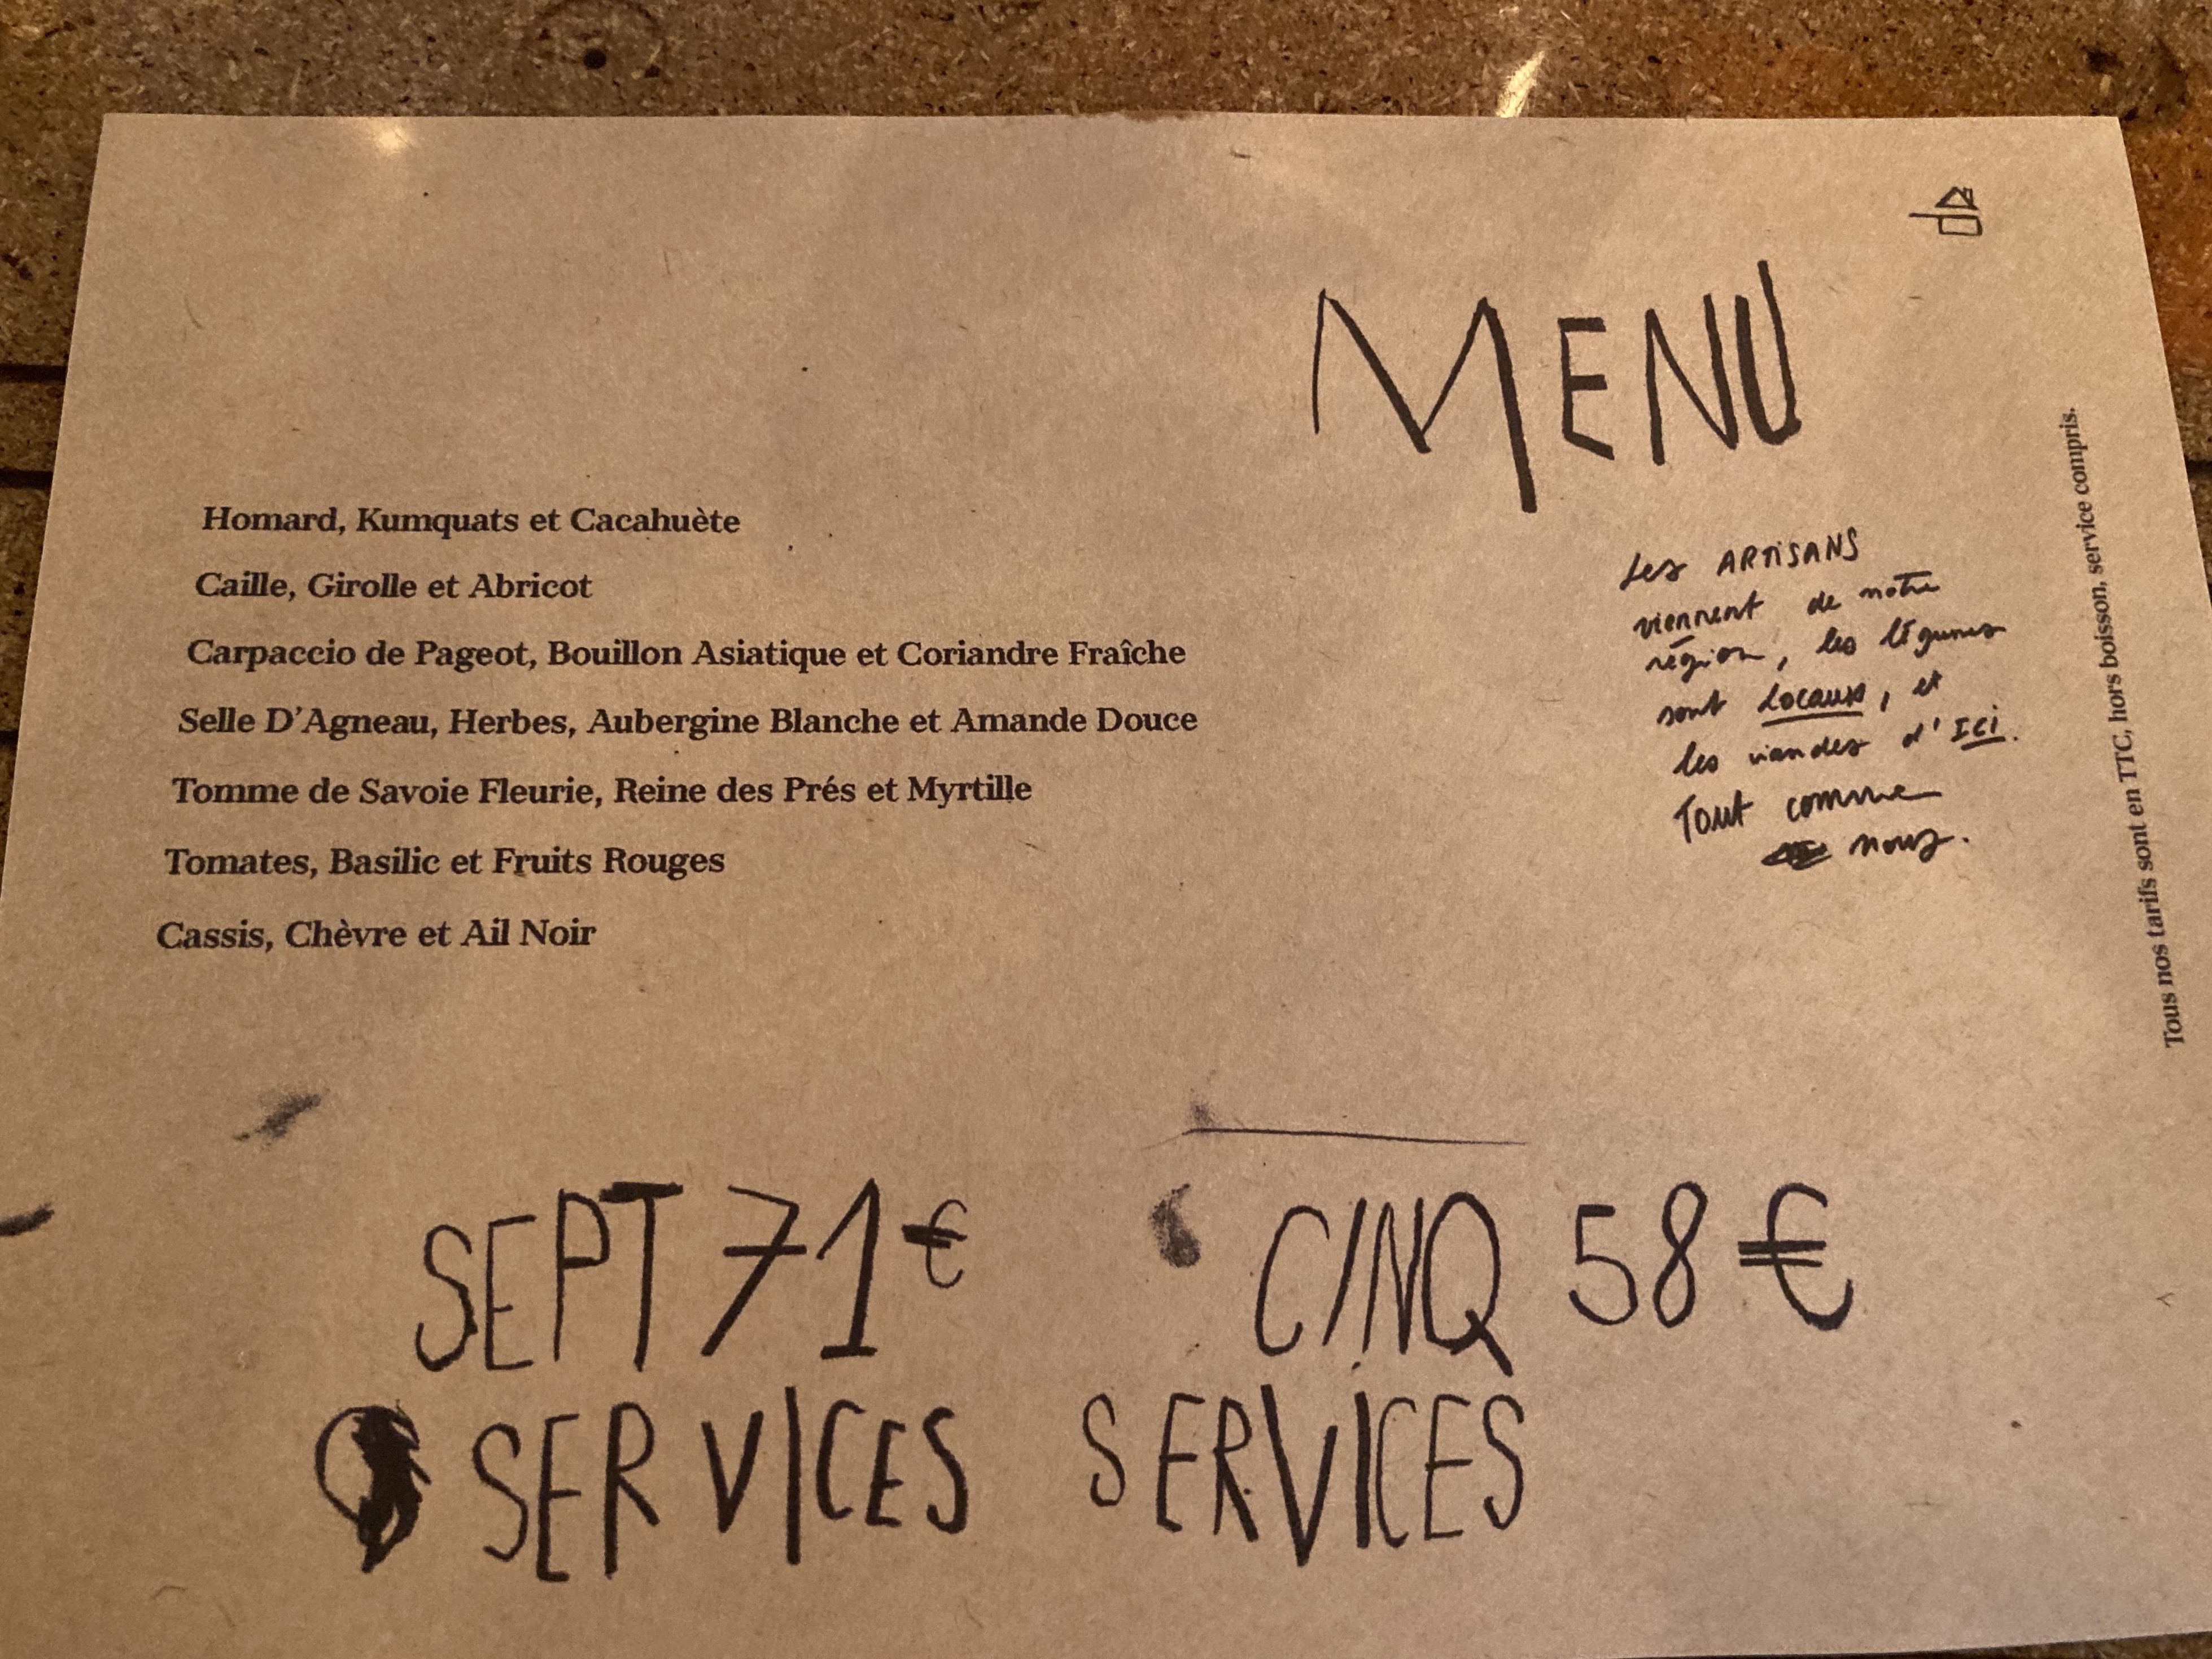 MENU
Homard, Kumquats et Cacahuète
Caille, Girolle et Abricot
Carpaccio de Pageot, Bouillon Asiatique et Coriandre Fraîche
Selle D'Agneau, Herbes, Aubergine Blanche et Amande Douce
Tomme de Savoie Fleurie, Reine des Prés et Myrtille
Tomates, Basilic et Fruits Rouges
Cassis, Chèvre et Ail Noir
Les ARTISANS
viennent de notre
région, les légumes
sont Locaux, et
les viandes d'Ici.
Tout comme
nous.
Tous nos tarifs sont en TTC, hors boisson, service compris.
SEPT 71€
SERVICES
CINQ 58€
SERVICES